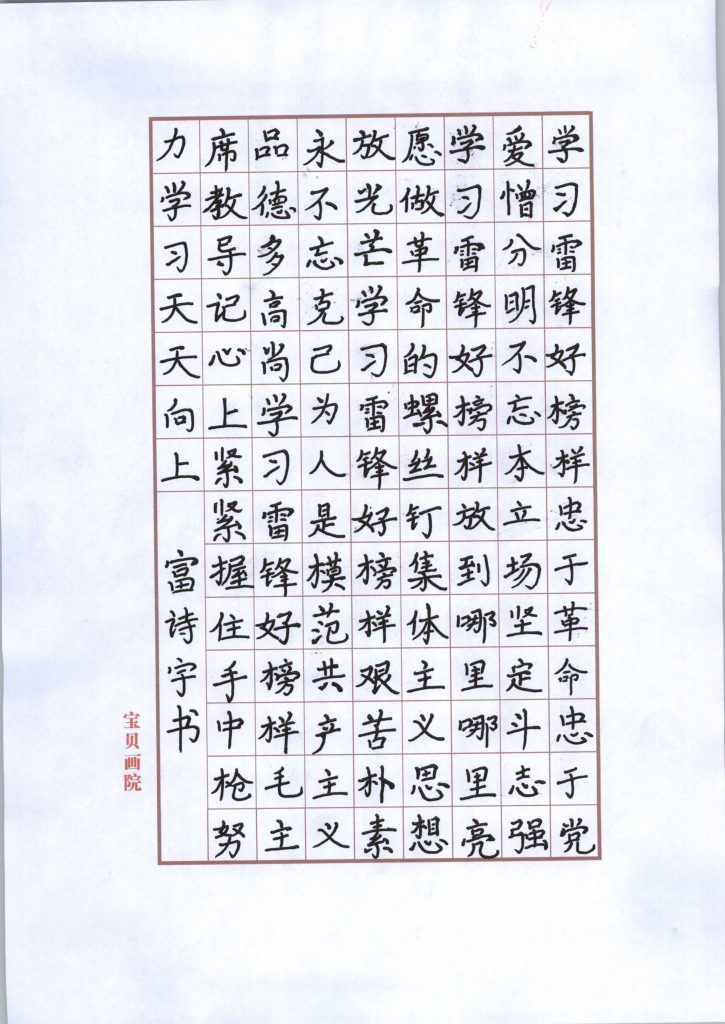 学习雷锋好榜样忠于革命忠于党
爱憎分明不忘本立场坚定斗志强
学习雷锋好榜样放到哪里哪里亮
愿做革命的螺丝钉集体主义思想
放光芒学习雷锋好榜样艰苦朴素
永不忘克己为人是模范共产主义
品德多高尚学习雷锋好榜样毛主
席教导记心上紧紧握住手中枪努
力学习天天向上
富诗宇书
宝贝画院